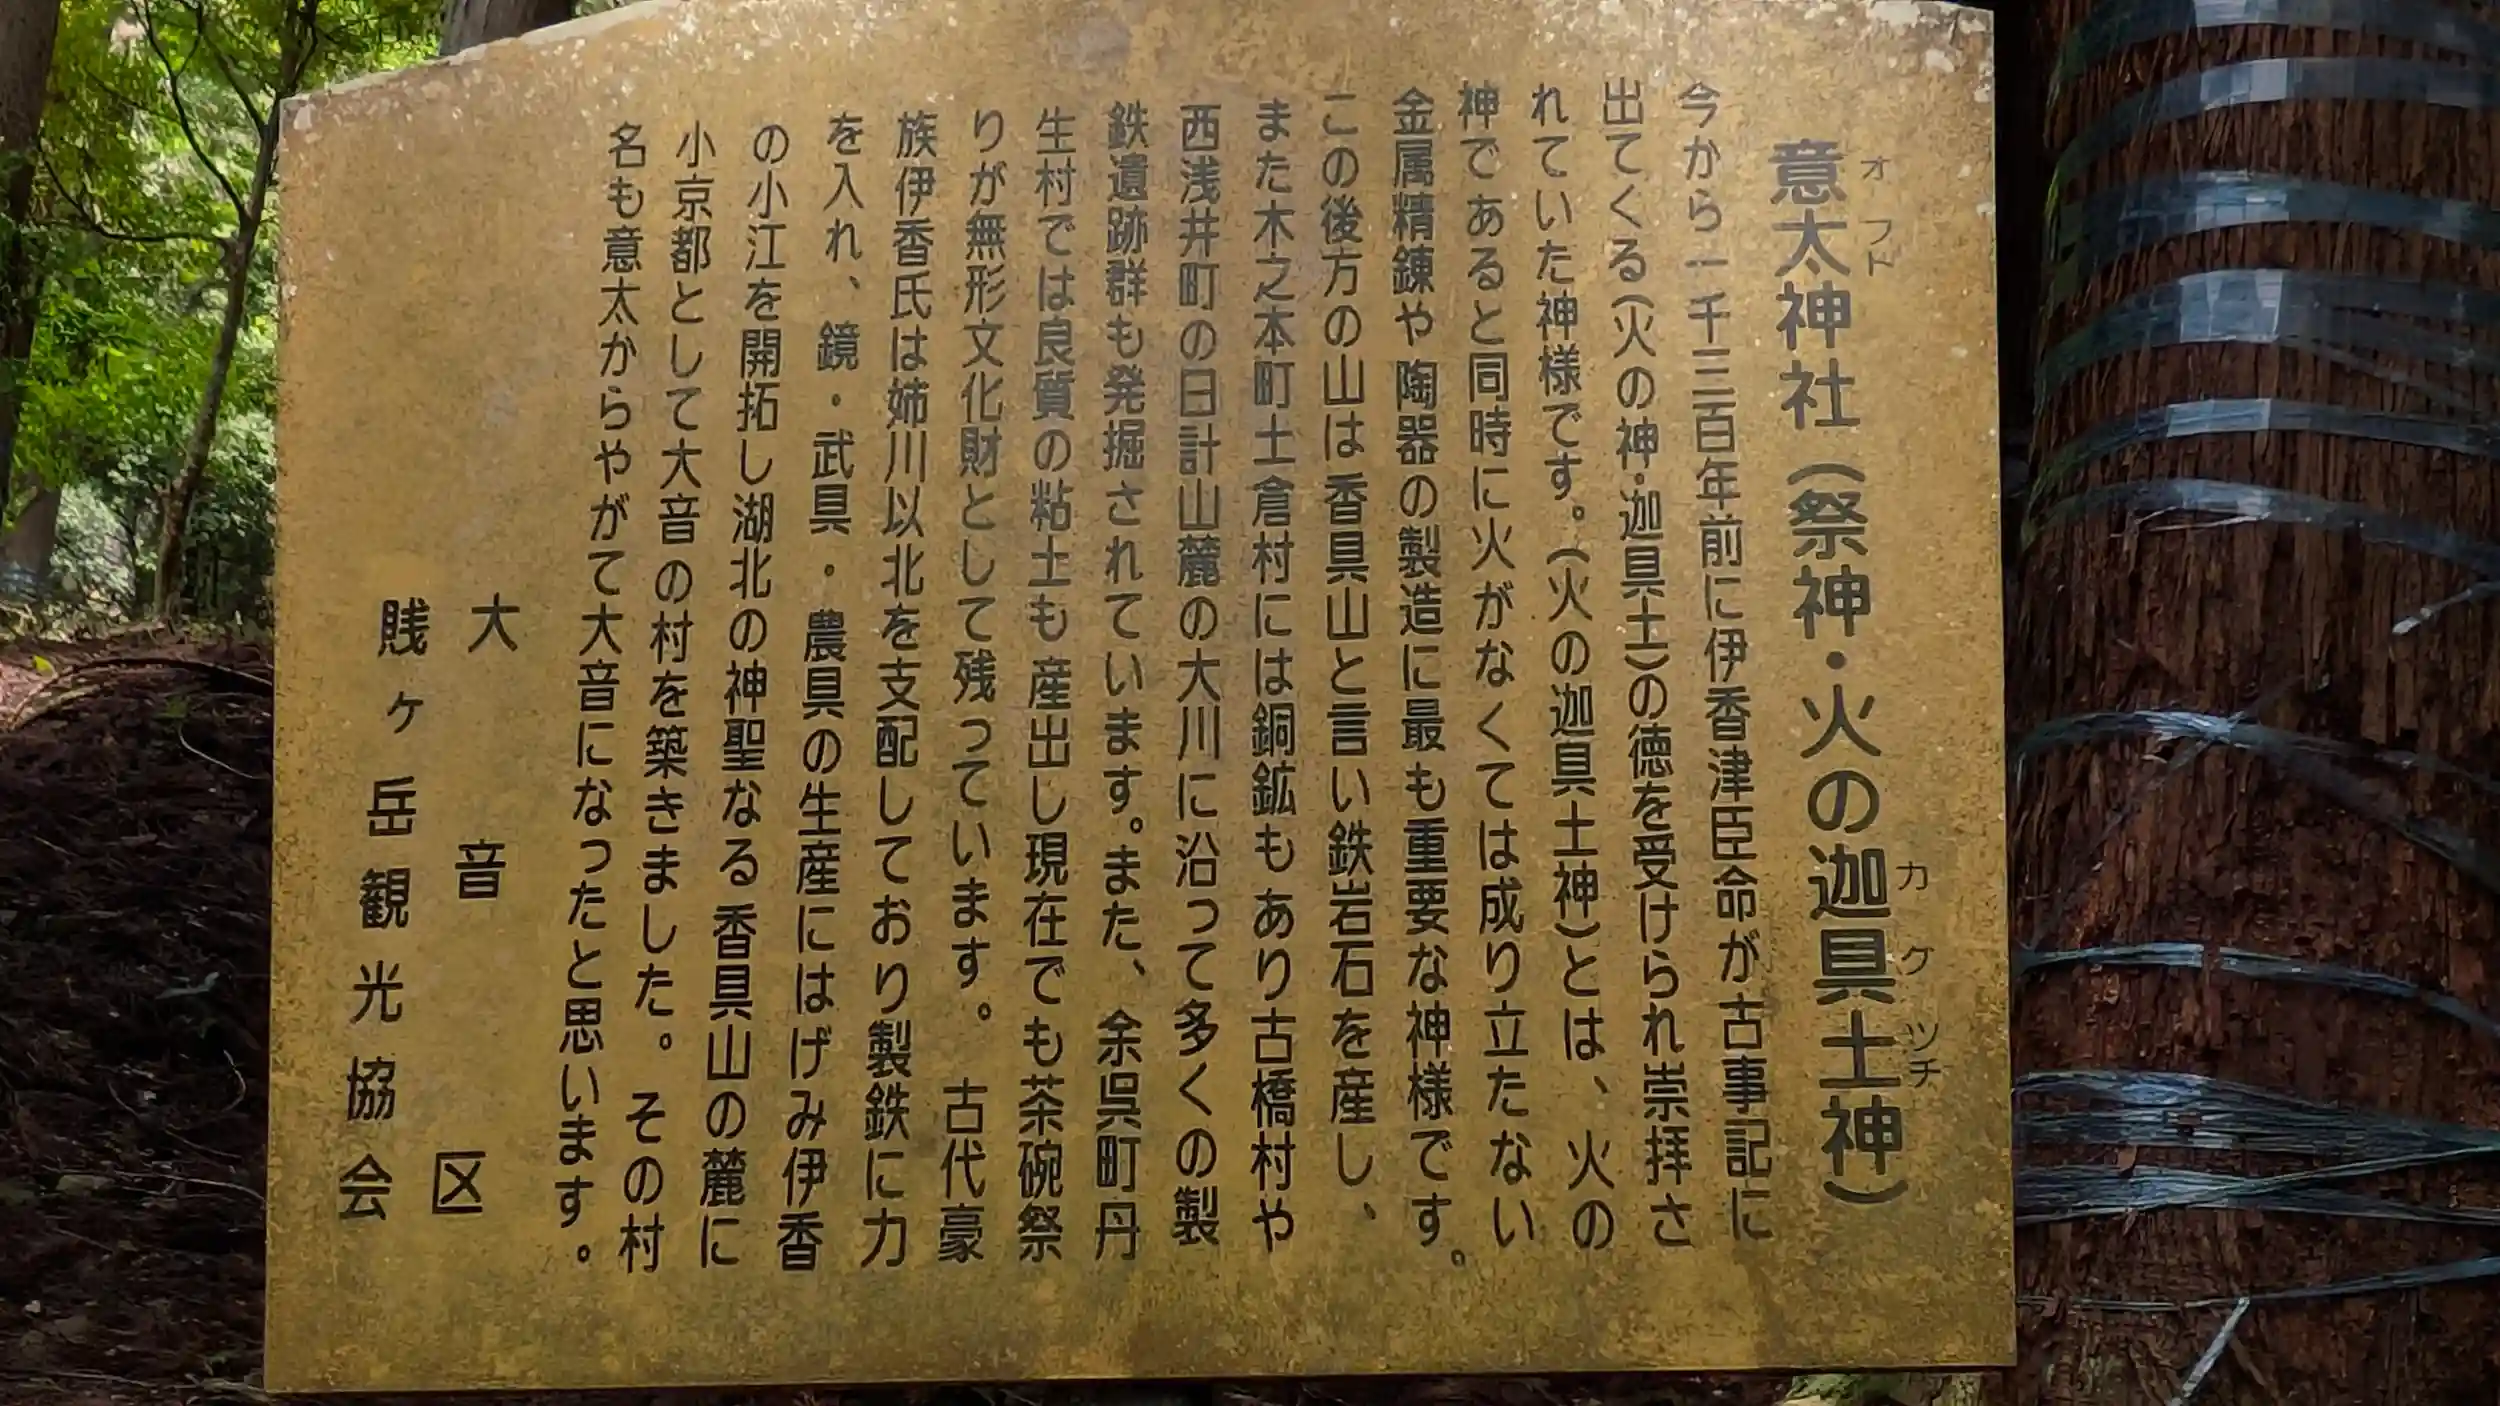 意太神社（祭神・火の迦具土神）
オフト
カグツチ
今から一千三百年前に伊香津臣命が古事記に
出てくる（火の神・迦具土）の徳を受けられ崇拝さ
れていた神様です。（火の迦具土神）とは、火の
神であると同時に火がなくては成り立たない
金属精錬や陶器の製造に最も重要な神様です。
この後方の山は香具山と言い鉄岩石を産し、
また木之本町土倉村には銅鉱もあり古橋村や
西浅井町の日計山麓の大川に沿って多くの製
鉄遺跡群も発掘されています。また、余呉町丹
生村では良質の粘土も産出し現在でも茶碗祭
りが無形文化財として残っています。古代豪
族伊香氏は姉川以北を支配しており製鉄に力
を入れ、鏡・武具・農具の生産にはげみ伊香
の小江を開拓し湖北の神聖なる香具山の麓に
小京都として大音の村を築きました。その村
名も意太からやがて大音になったと思います。
大音区
賤ヶ岳観光協会